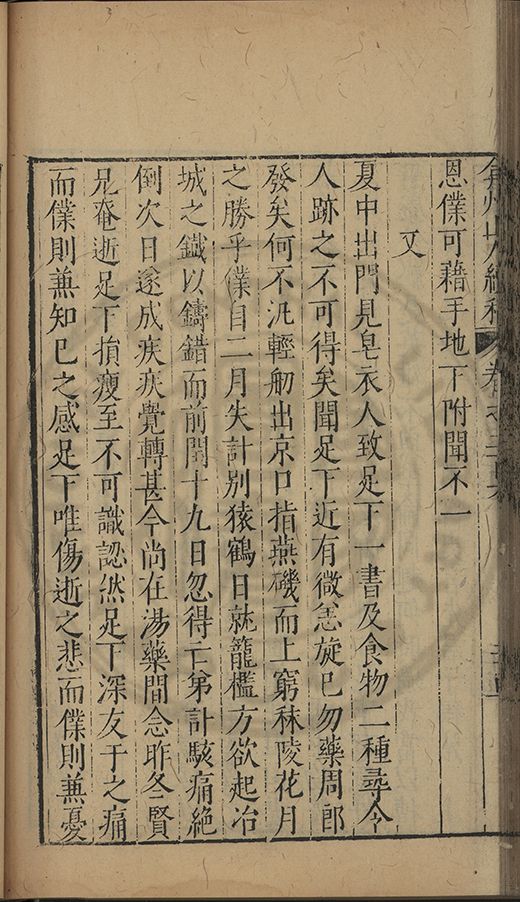 恩僕可藉手地下附聞不一
又
夏中出門見皂衣人致足下一書及食物二種尋令
人跡之不可得矣聞足下近有微恙旋已勿藥周郎
發矣何不汎輕舠出京口指燕磯而上窮秣陵花月
之勝乎僕自二月失計別猿鶴日就籠檻方欲起冶
城之鐵以鑄錯而前閏十九日忽得亡弟訃駭痛絕
倒次日遂成疾疾覺轉甚今尚在湯藥間念昨冬賢
兄奄逝足下損瘦至不可識認然足下深友于之痛
而僕則兼知已之感足下唯傷逝之悲而僕則兼憂